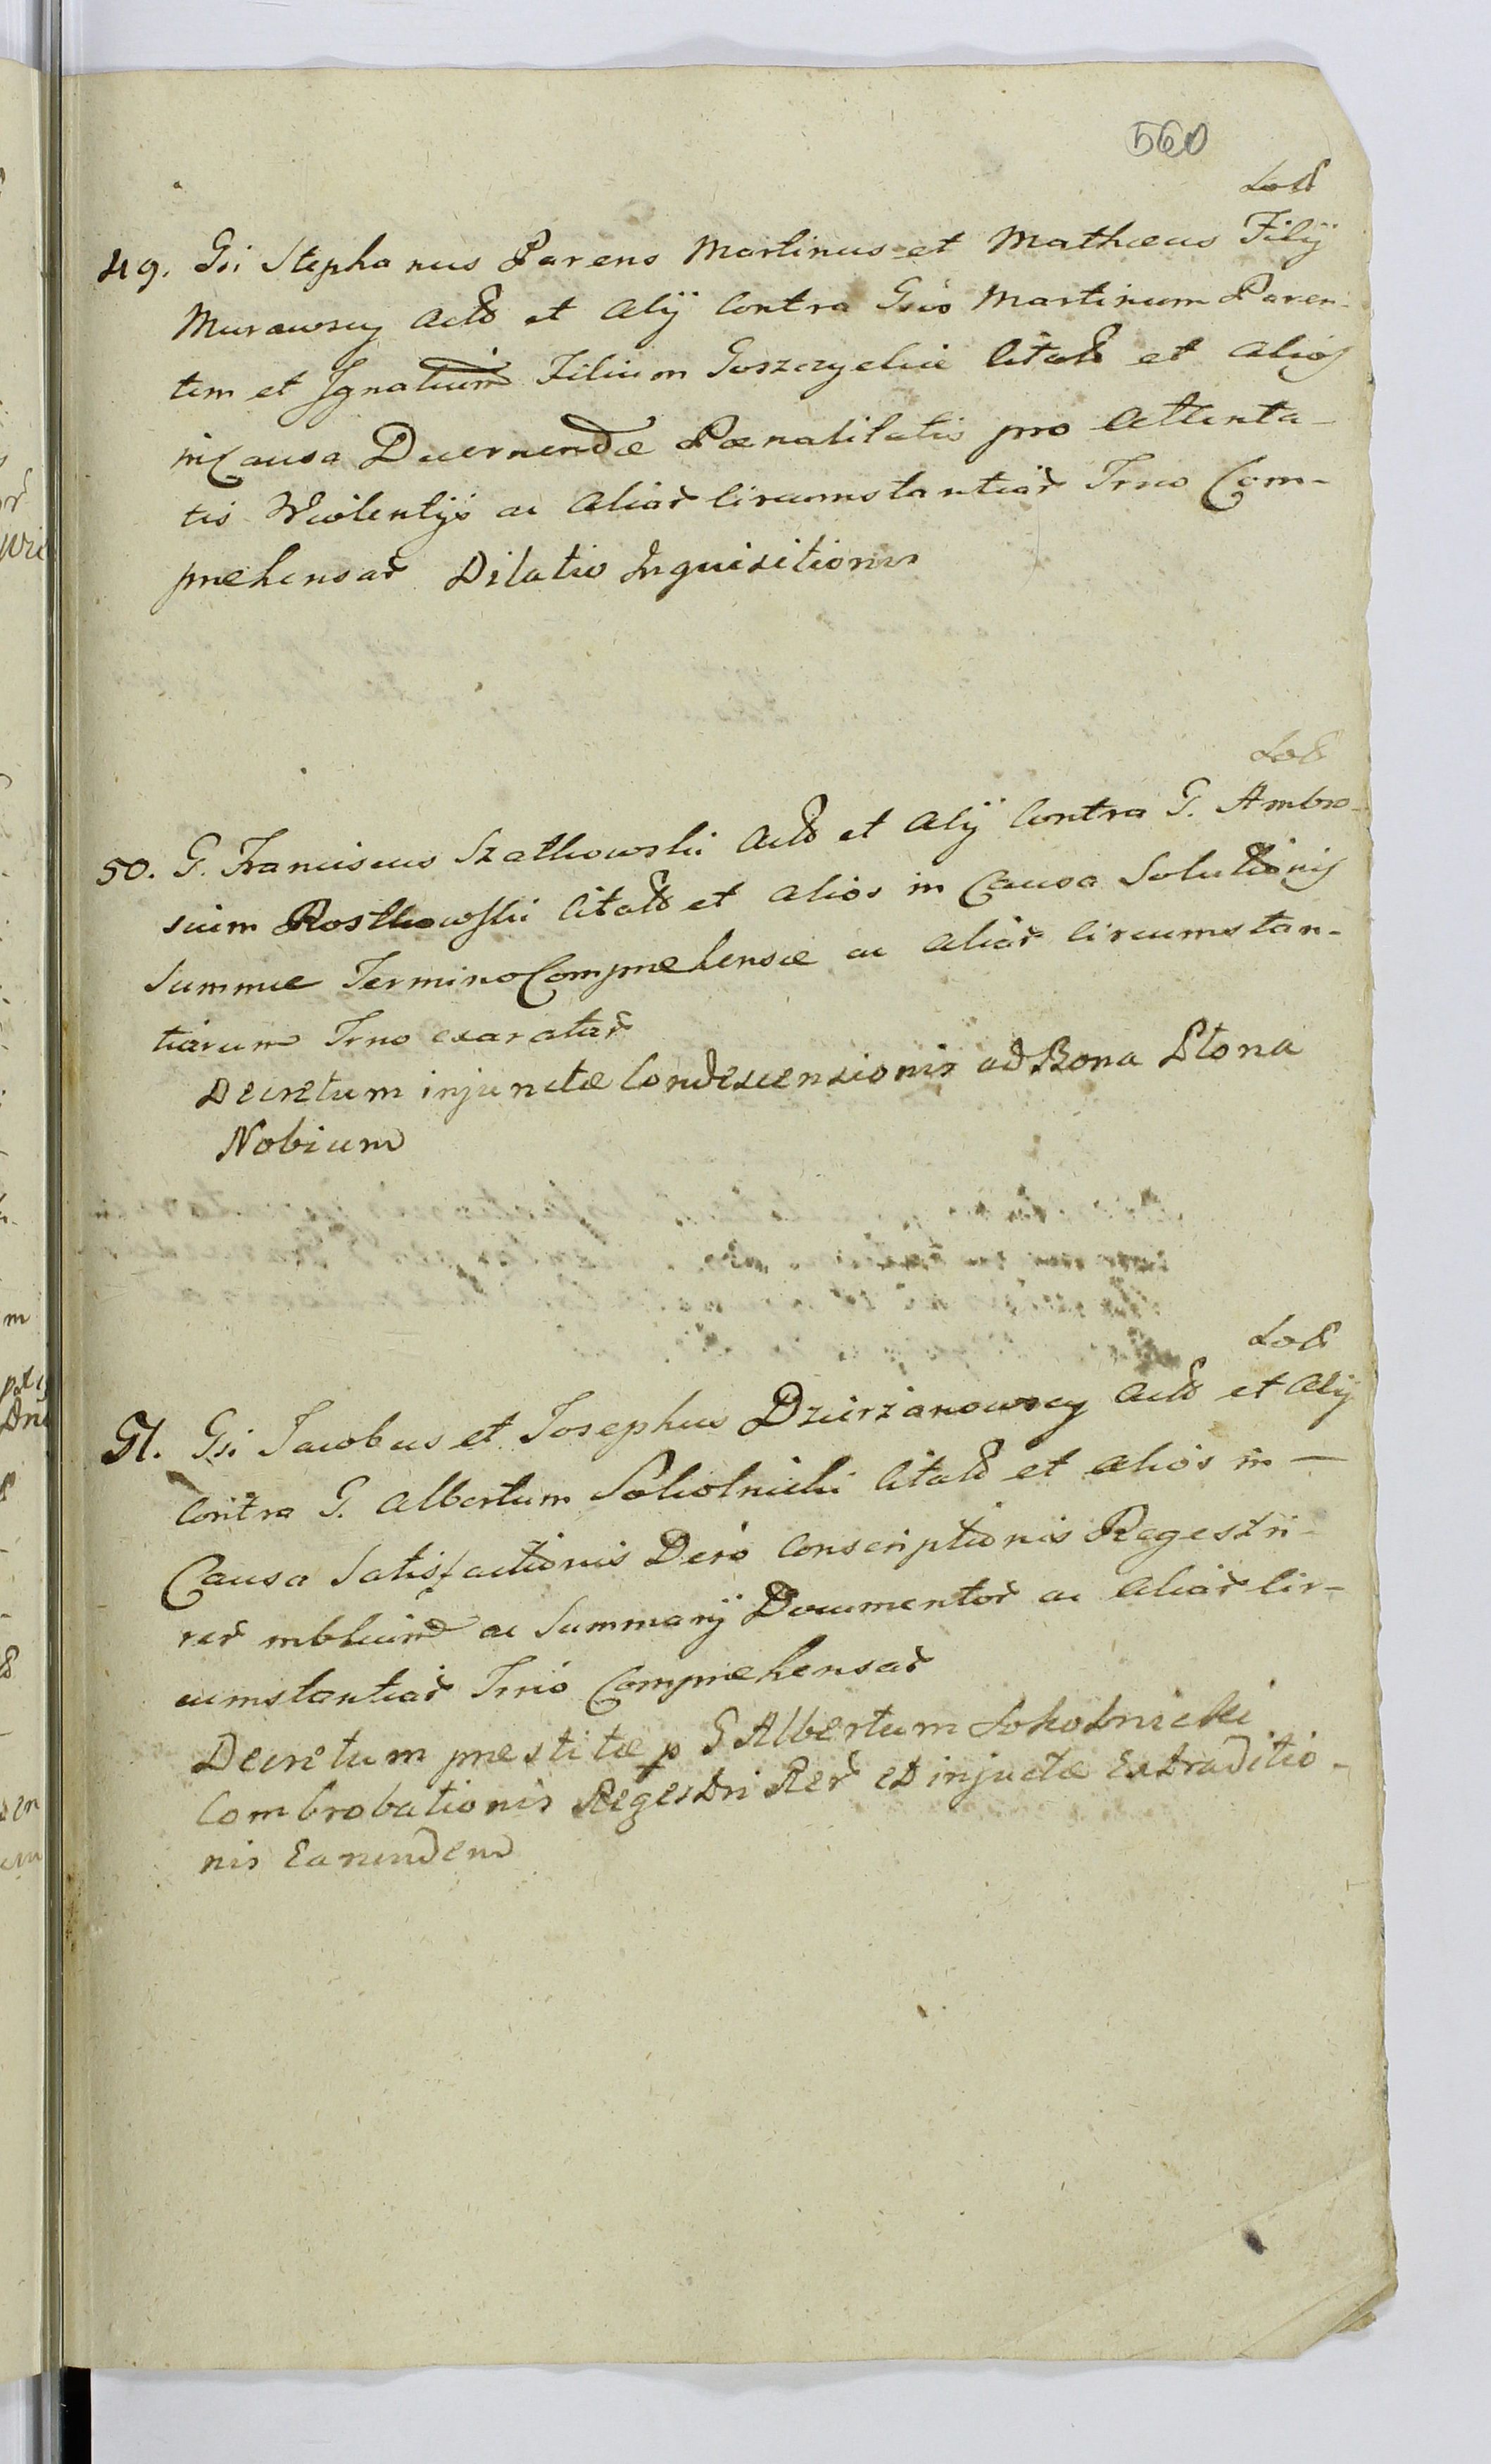 560
49. Gsi Stephanus Parens Martinus et Mathæus Filÿ
Murawscy Actŏ et Alÿ Contra Gsos Martinum Paren-
tem et Ignatium Filium Goszczyckie Citatŏ et alios
in Causa Decernendæ Pœnalitatis pro Attenta-
tis Violentÿs ac Aliar̃ Circumstantiar̃ Trno Com-
præhensar̃ Dilatio Inquisitionis
50. G. Franciscus Szatkowski Actŏ et Alÿ Contra G. Ambro-
sium Rostkowski Citatŏ et Alios in Causa Solutionis
Summæ Termino Compræhensæ ac Aliar̃ Circumstan-
tiarum Trno exaratar̃
Decretum injunctæ Condescensionis ad Bona Płona
Nobium
51. Gsi Jacobus et Josephus Dzierzanowscy Actŏ et Alÿ
Contra G. Albertum Sokolnicki Citatŏ et alios in —
Causa Satisfactionis Dcro Conscriptionis Regestri
rer̃ mblium ac Summarÿ Documentor̃ ac Aliar̃ Cir-
cumstantiar̃ Trno Compræhensar̃
Decretum præstitæ p G Albertum Sokolnicki
Combrobationis Regestri Rer̃ et injuctæ Extraditio-
nis Earundem